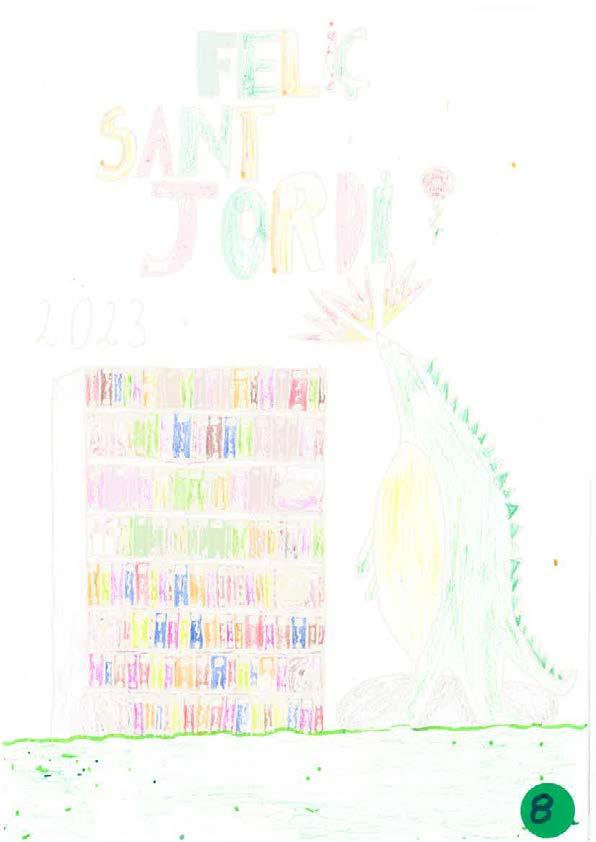 FELIÇ
SANT
JORDI!
2023
8